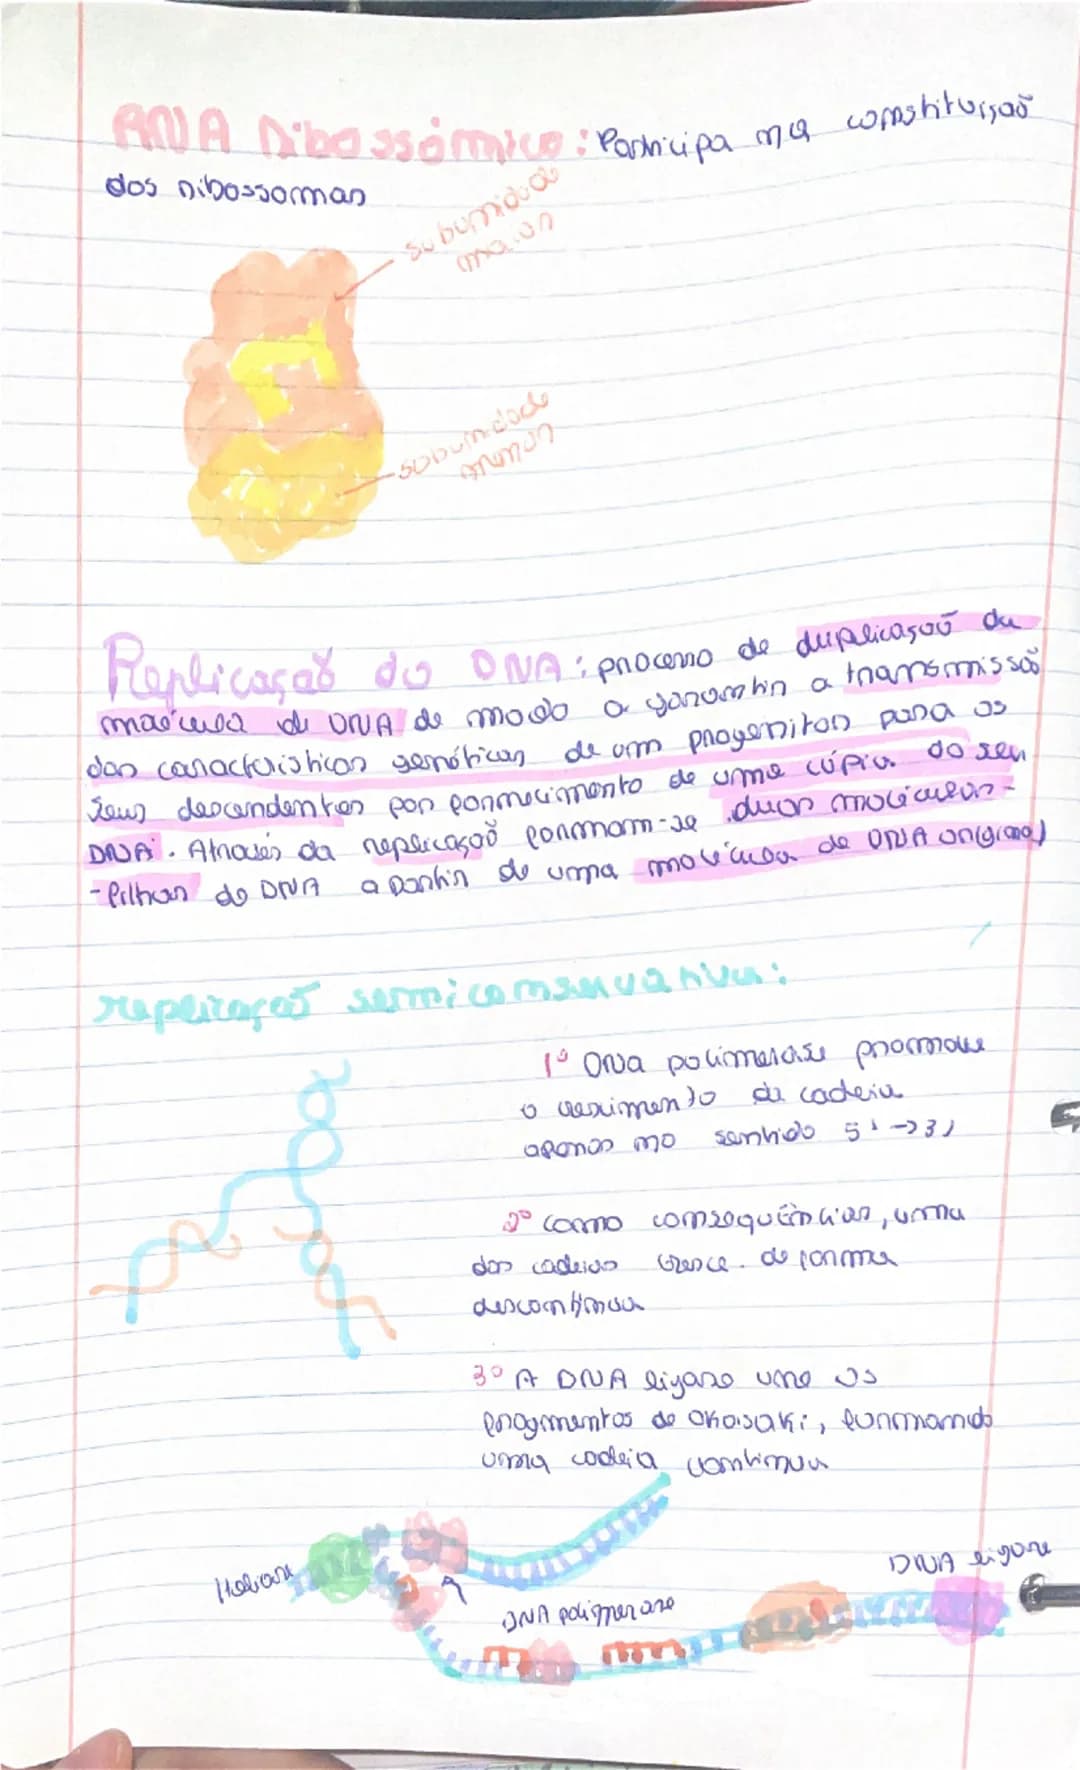 RNA Ribossómico: Participa na constituição
dos ribossomas
subunidade
maior
subunidade
menor
Replicação do DNA: processo de duplicação da
molécula de DNA de modo a garantir a transmissão
das características genéticas de um progenitor para os
seus descendentes por fornecimento de uma cópia do seu
DNA. Através da replicação formam-se duas moléculas-
-filhas de DNA a partir de uma molécula de DNA original
replicação semiconservativa:
1º DNA polimerase promove
o crescimento da cadeia
apenas no sentido 5'->3'
2º Como consequências, uma
das cadeias cresce de forma
descontínua
3º A DNA ligase une os
fragmentos de Okasaki, formando
uma cadeia contínua
Helicase
DNA ligase
DNA polimerase